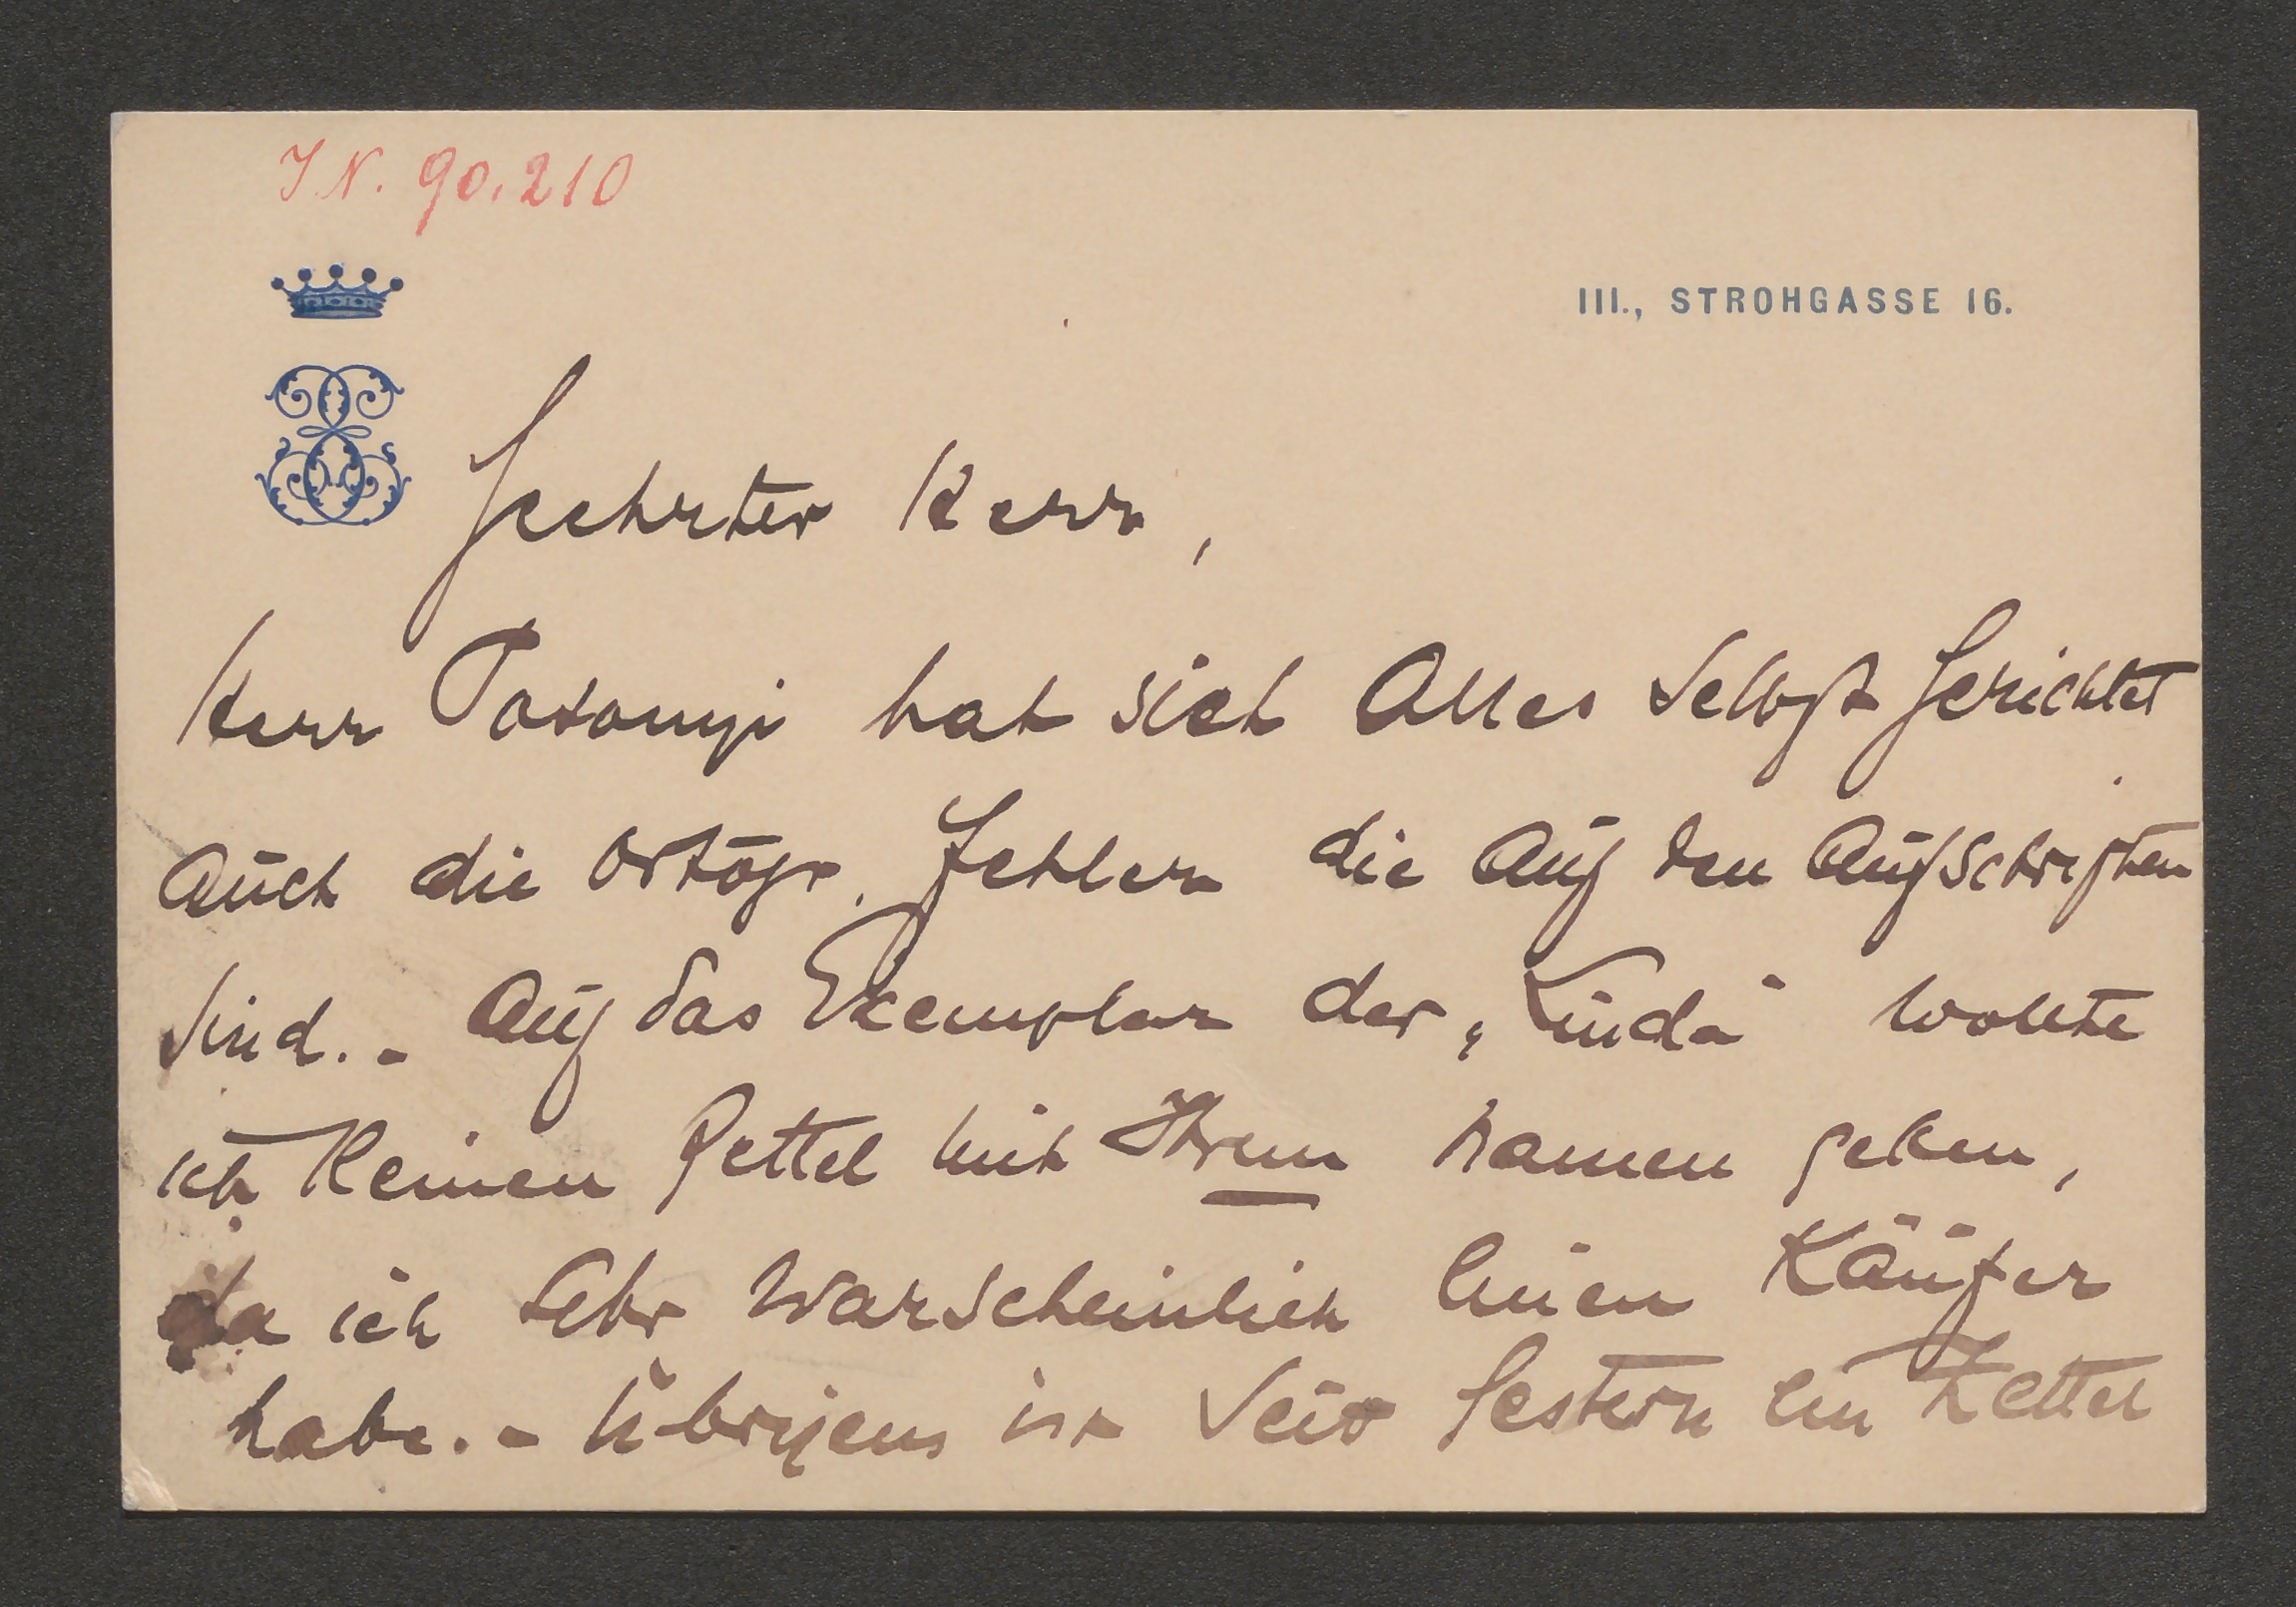 I N. 90.210
III., STROHGASSE 16.
Geehrter Herr,
Herr Posonyi hat sich Alles selbst gerichtet
auch die ortogr. Fehler die auf den Aufschriften
sind. - Auf das Exemplar der „Linda" wollte
ich keinen Zettel mit Ihrem Namen geben,
da ich sehr warscheinlich einen Käufer
habe. - Übrigens ist seit gestern ein Zettel